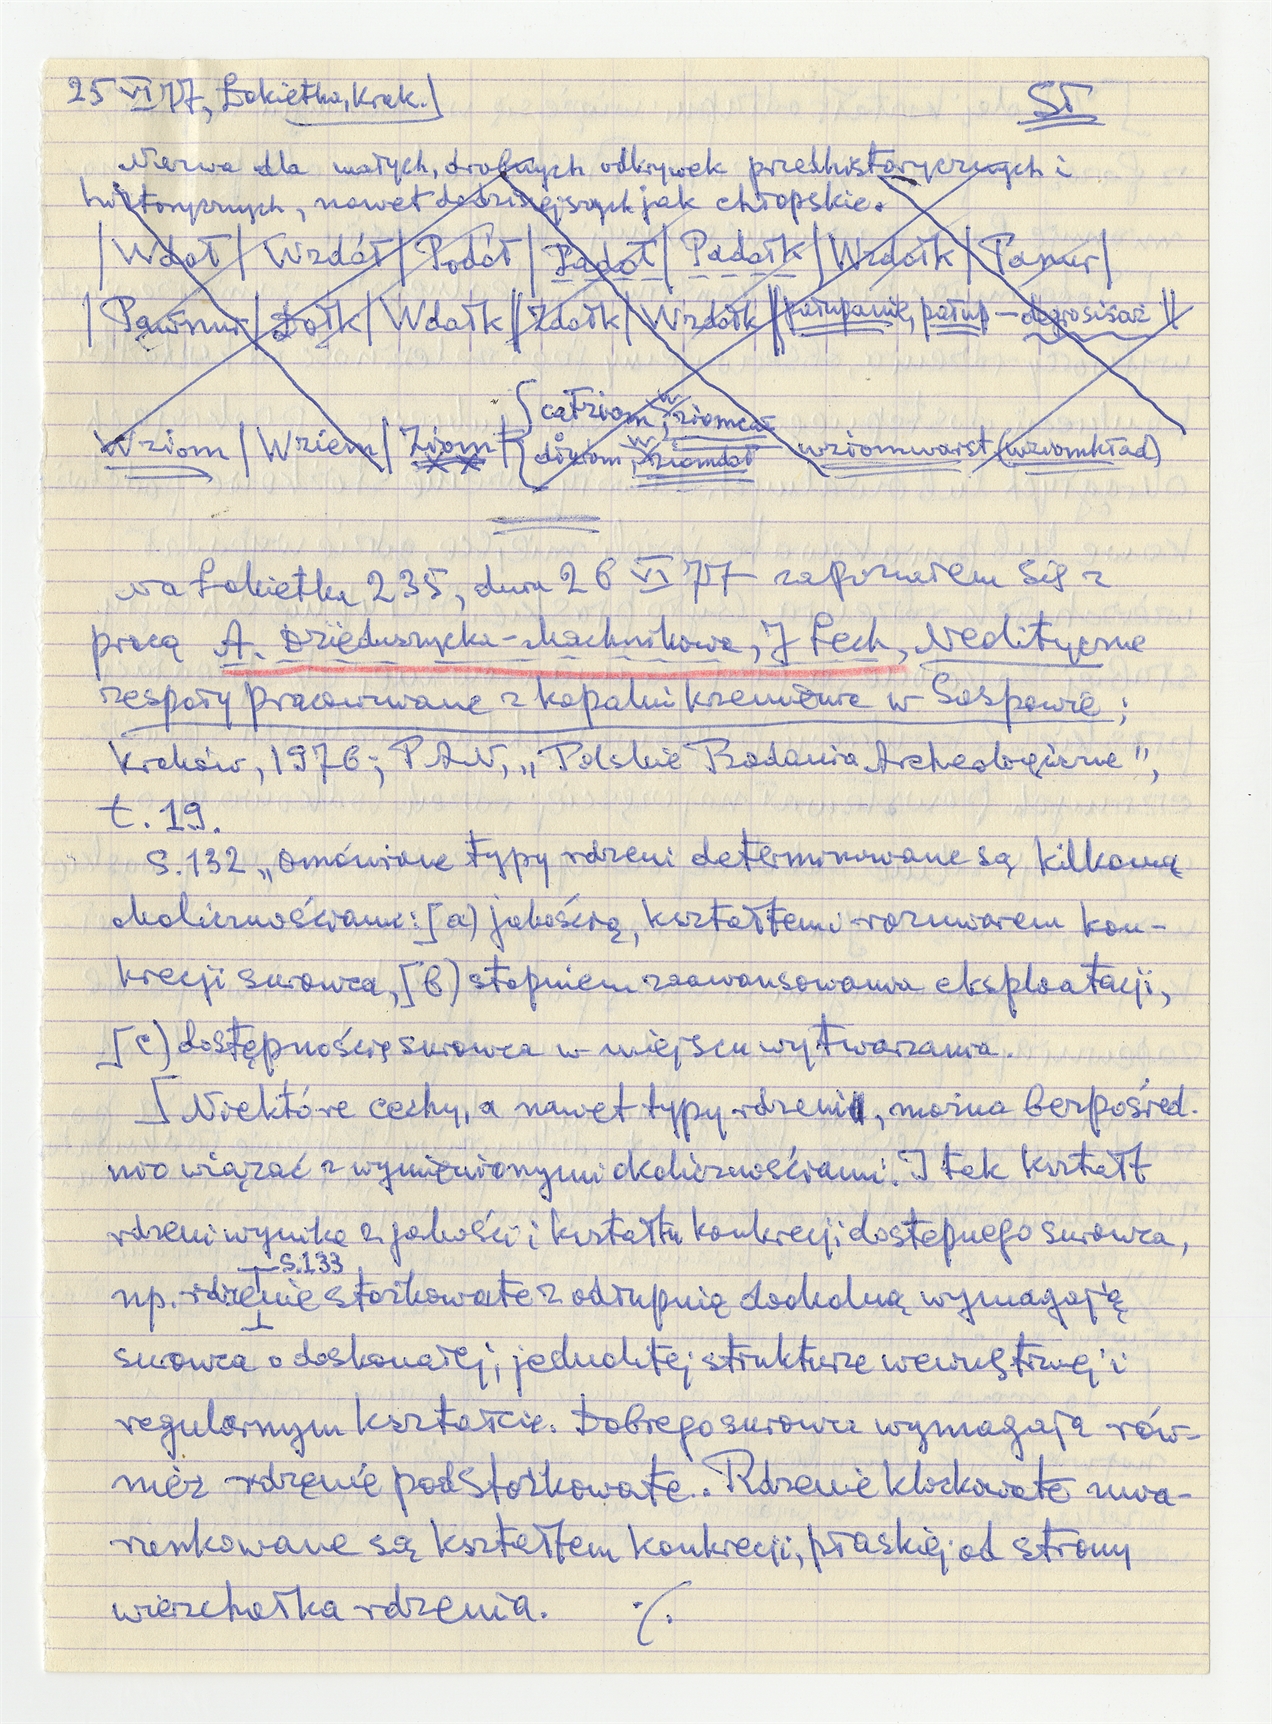 25 VI 77, Łokietka, Krak.]
SŁ
Nazwa dla małych, drobnych odkrywek przedhistorycznych i
historycznych, nawet dzisiejszych jak chłopskie.
| Wdół | Wzdół | Podół | Padół | Padołk | Wzdołk | Panur |
| Dołk | Wdołk || Zdołk | Wzdołk || załupanie, załup – degrosisaż ||
Wziom | Wziem | Ziom { całziom, ziomca
dziom, ziomdoł wziomwarst (wziomkład)
na Łokietka 235, dnia 26 VI 77 zapoznałem się z
pracą A. Dzieduszycka-Machnikowa, J Lech, Neolityczne
zespoły pracowniane z kopalni krzemienia w Sąspowie;
Kraków, 1976; PAN, „Polskie Badania Archeologiczne",
t. 19.
S. 132 „omówione typy rdzeni determinowane są kilkoma
okolicznościami: [a) jakością, kształtem i rozmiarem kon-
krecji surowca, [b) stopniem zaawansowania eksploatacji,
[c) dostępnością surowca w miejscu wytwarzania.
[Niektóre cechy, a nawet typy rdzeni, można bezpośred.
nio wiązać z wymienionymi okolicznościami. I tak kształt
rdzeni wynika z jakości i kształtu konkrecji dostępnego surowca,
S. 133
np. rdzenie stożkowate z odłupnią dookolną wymagają
surowca o doskonałej, jednolitej strukturze wewnętrznej i
regularnym kształcie. Dobrego surowca wymagają rów-
nież rdzenie podstożkowate. Rdzenie klockowate uwa-
runkowane są kształtem konkrecji, płaskiej od strony
wierzchołka rdzenia. ./.